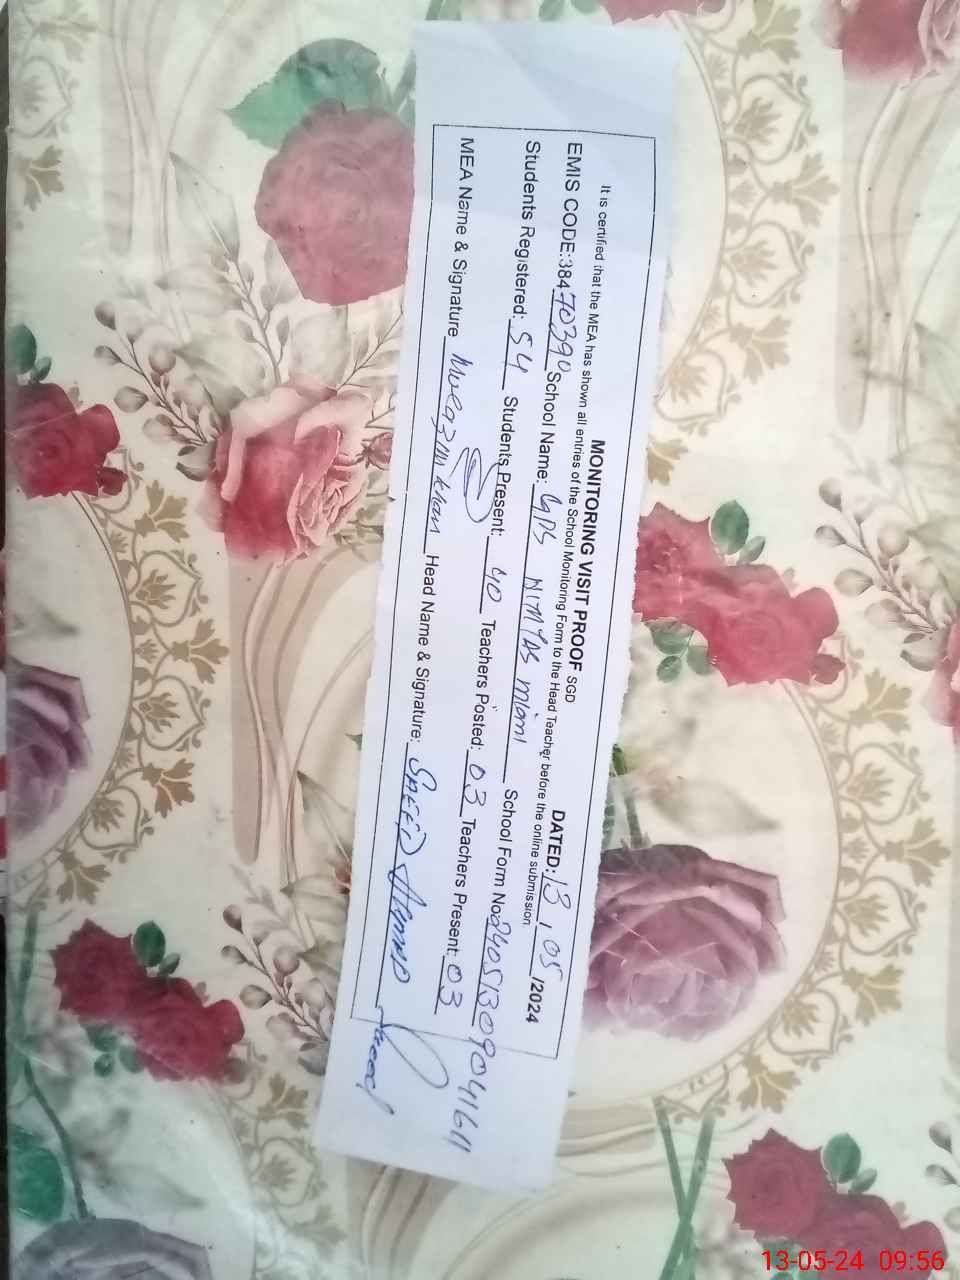 MONITORING VISIT PROOF SGD DATED: 13 / 05 /2024
It is certified that the MEA has shown all entries of the School Monitoring Form to the Head Teacher before the online submission
EMIS CODE:38470390 School Name: GPS School Form No 240513090416 11
Students Registered: 54 Students Present: 40 Teachers Posted: 03 Teachers Present: 03
MEA Name & Signature Khan Head Name & Signature: SAEED AHMAD Saeed
13-05-24 09:56